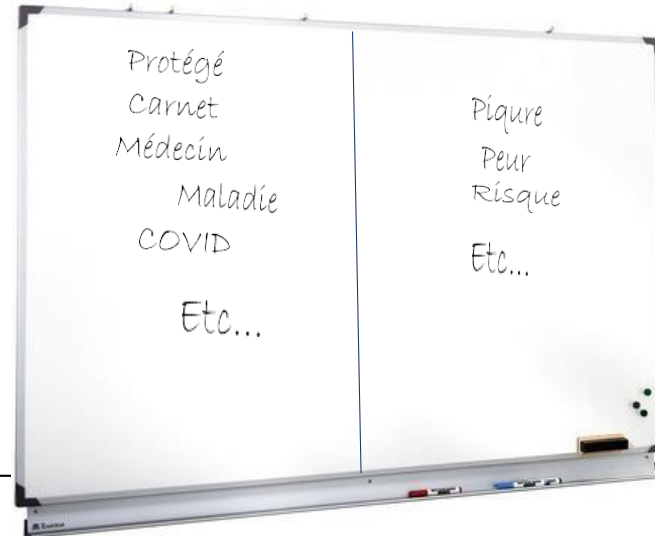 Protégé
Carnet
Médecin
Maladie
COVID
Etc...
Piqure
Peur
Risque
Etc...